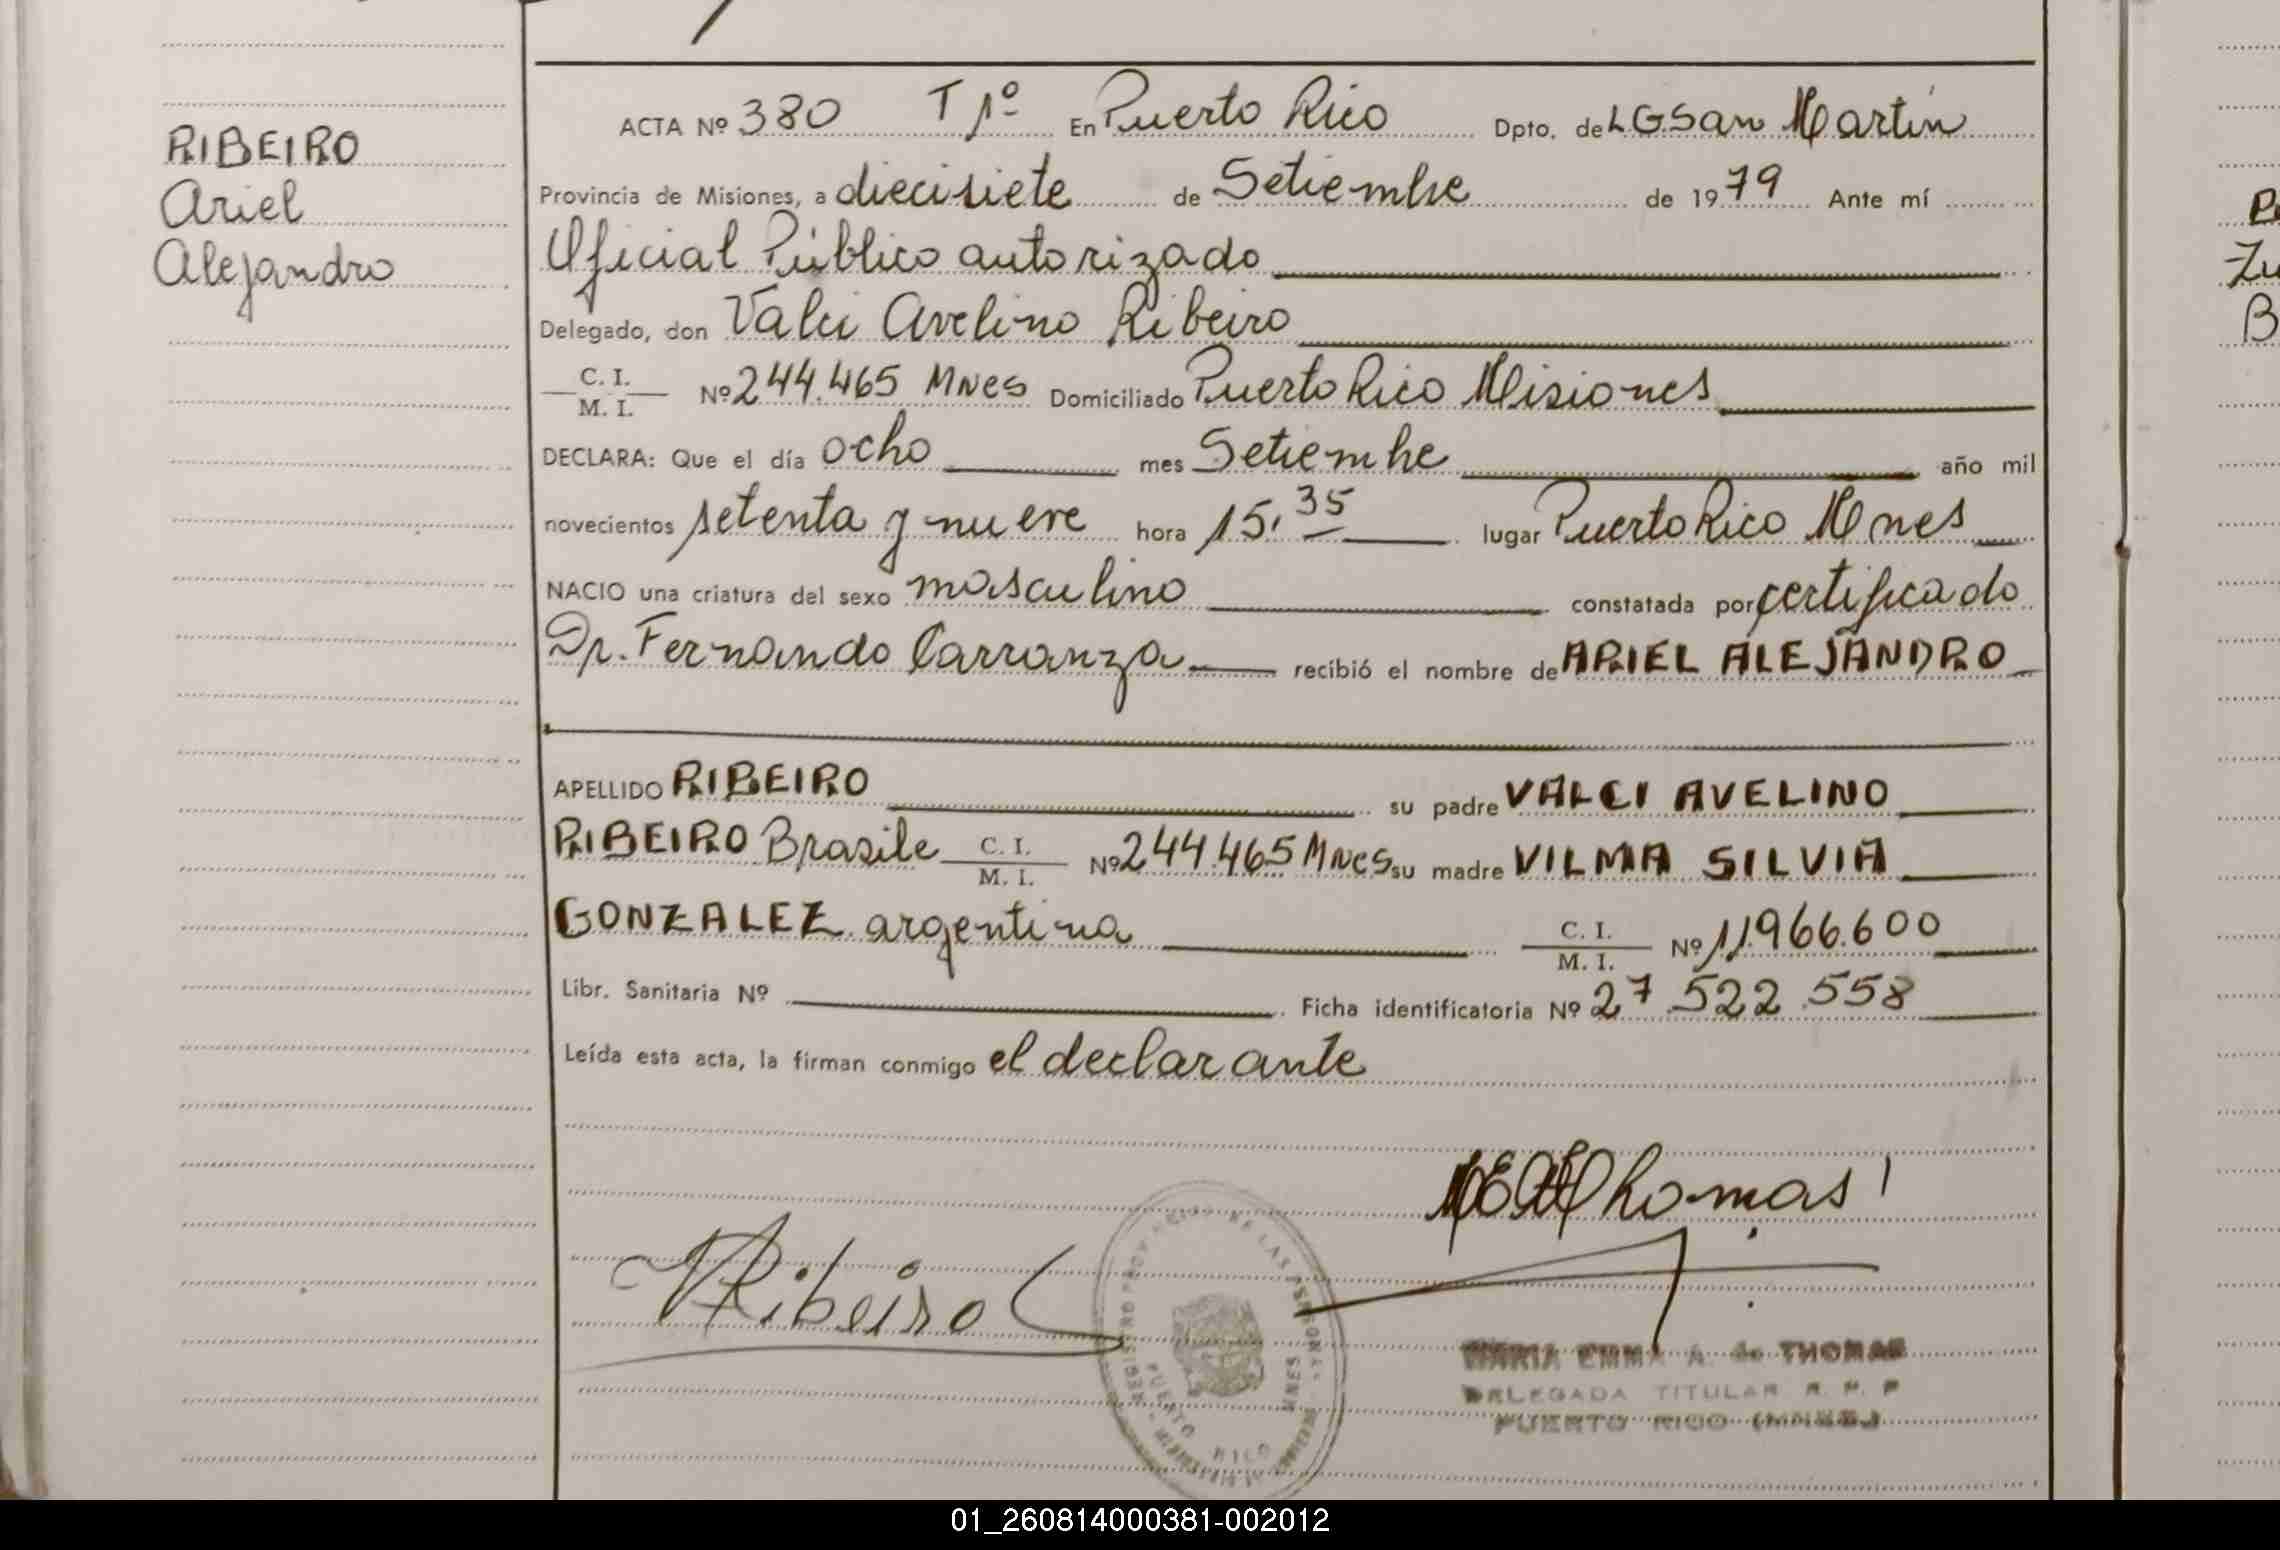 RIBEIRO
Ariel
Alejandro
ACTA Nº 380 T 1º En Puerto Rico Dpto. de L G San Martín
Provincia de Misiones, a diecisiete de Setiembre de 1979 Ante mí
Oficial Público autorizado
Delegado, don Valci Avelino Ribeiro
C. I.
M. I. Nº 244.465 MNES Domiciliado Puerto Rico Misiones
DECLARA: Que el día ocho mes Setiembre año mil
novecientos setenta y nueve hora 15.35 lugar Puerto Rico Mnes
NACIO una criatura del sexo masculino constatada por certificado
Dr. Fernando Carranza recibió el nombre de ARIEL ALEJANDRO
APELLIDO RIBEIRO su padre VALCI AVELINO
RIBEIRO Brasile C. I. Nº 244.465 MNES su madre VILMA SILVIA
M. I.
GONZALEZ argentina C. I. Nº 11.966.600
M. I.
Libr. Sanitaria Nº Ficha identificatoria Nº 27.522.558
Leída esta acta, la firman conmigo el declarante
Ribeiro
Thomas
MARIA EMMA A. de THOMAS
DELEGADA TITULAR R. P. P
PUERTO RICO (MNES.)
PUERTO RICO
MNES
01_260814000381-002012